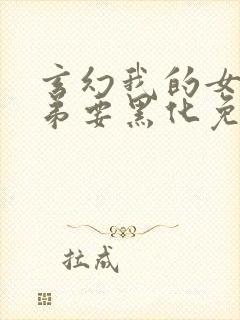 玄幻我的女
弟要黑化免
拉成